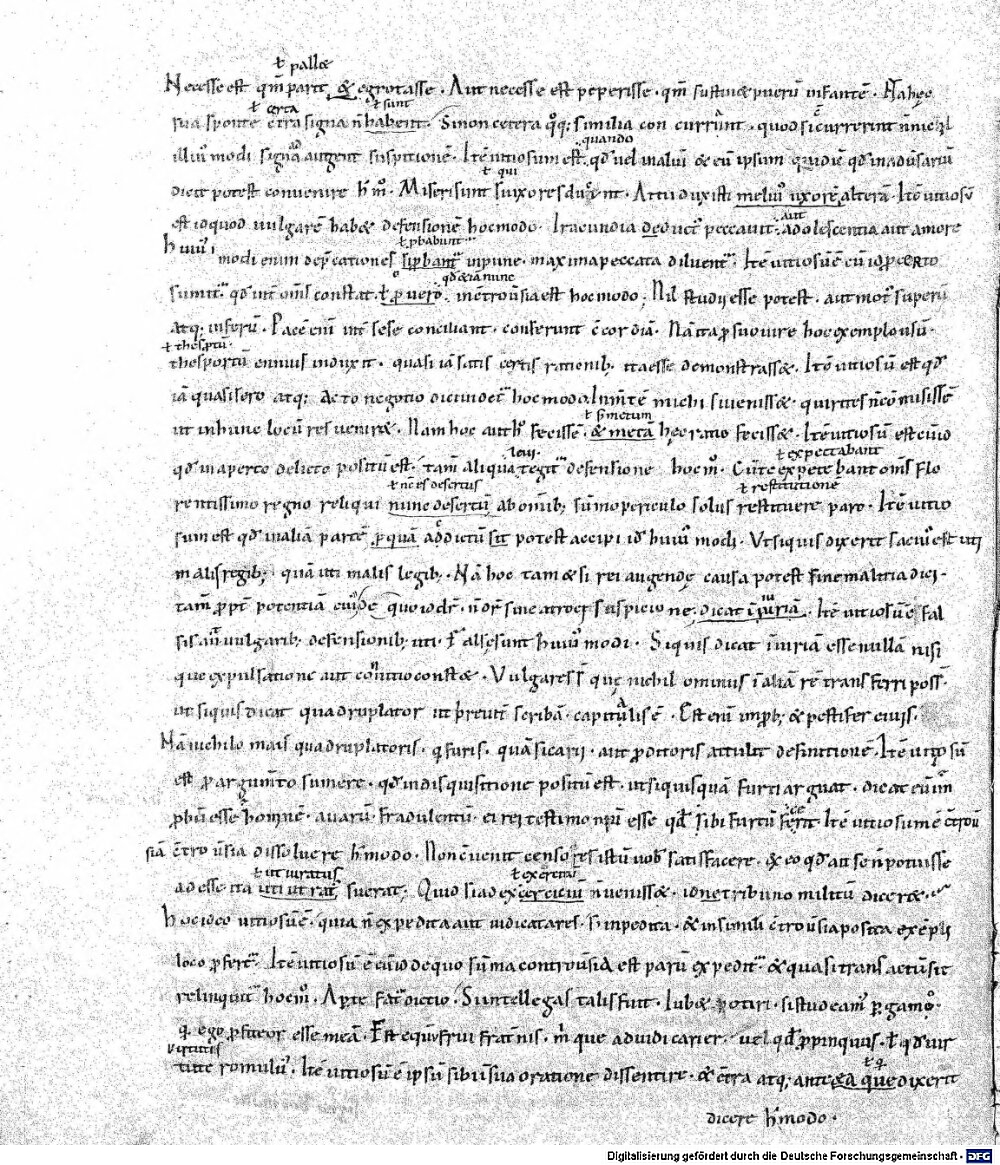 ł pallæ
Necesse est qm̄ parit & egrotasse. Aut necesse est peperisse. qm̄ sustin& puerū infantē. Nā hęc
ł certa ł sunt
sua sponte c̄tra signa n̄ habent. Sin on cetera qq; similia con currunt. quod si c̄currerint n̄ nichil
quando
illiu᷒ modi signa augent suspitionē. Itē uitiosum est. qd̄ uel in aliū & eū ipsum qui diē qd̄ in adūsariū
ł qui
dicit potest conuenire h̄ m̊. Miseri sunt qui uxores ducunt. At tu duxisti meliu᷒ uxorē alterā. Itē uitiosū
aut
est id quod uulgarē hab& defensionē hoc modo. Iracundia deduct᷒ peccauit. adolescentia aut amore
ł ꝓbabunt
hui᷒ modi enim dep̄cationes si ꝓbant᷒ inpune. maxima peccata diluent᷒. Itē uitiosū ē cū id ꝓ certo
qd̄ & iā nunc
sumit᷒ qd̄ int̄ om̄s constat. ł ꝓ uero. in c̄trouersia est hoc modo. Nil studii esse potest. aut mot᷒ superū
atq; inferū. Pacē enī int̄ sese conciliant. conferunt c̄cordiā. Nā ita ꝓ suo iure hoc exemplo usū
ł thesꝓtū
thesportū ennius induxit. quasi iā satis certis rationib; ita esse demonstrass&. Itē uitiosū est qd̄
iā quasi sero atq; acto negotio dici uidet᷒ hoc modo. In m̄tē michi si ueniss&. quirites n̄ cōmisissē
ł s; metum
ut in hunc locū res uenir&. Nam hoc aut h᷒ fecissē. & metā hęc ratio feciss&. Itē uitiosū est cū id
leui ł expectabant
qd̄ in aperto delicto positū est. tam̄ aliqua tegit᷒ defensione hoc m̊. Cū te expete bant om̄s Flo
ł nc̄ es desertus ł restitutionē
rentissimo regno reliqui nunc desertū ab omib; sūmo periculo solus restituere paro. Itē uitio
sum est qd̄ in aliā partē ꝓ quā addictū sit potest accipi id hui᷒ modi. Ut siquis dixerit saciu᷒ est uti
malis regib; quā uti malis legib; Nā hoc tam & si rei augendę causa potest sine malitia dici.
tam̄ ꝓpt̄ potentiā quo id dr̄. n̄ dr̄ sine atroci suspicio ne. dicat iniuriā. Itē uitiosū ē fal
sis aut uulgarib; defensionib; uti. Falsę sunt hui᷒ modi. Si quis dicat iniuriā esse nullā nisi
que expulsatione aut cōuitio const&. Vulgares s̄ que nichil ominus ī aliā rē transferri poss̄.
ut siquis dicat quadruplator ut breuit̄ scribā. capitalis ē. Est enī inprob; & pestifer ciuis.
Nā nichilo magis quadruplatoris. q̄ furis. quā sicarii. aut proditoris attulit definitionē. Itē uitiosū
est ꝓ argum̄to sumere. qd̄ in disquisitione positū est. ut siquis quā furti arguat. dicat eū im
ꝓbū esse hominē. auarū. fradulentū. ei rei testimoniū esse qd̄ sibi furtū fecerit. Itē uitiosum ē c̄trou̅
siā c̄trouersia dissoluere h̄ modo. Non c̄uenit censores istū uob̄ satisfacere. ex eo qd̄ ait se n̄ potuissē
ł ut iuratus ł exercitū
adesse ita uti ut rat᷒ fuerat. Quid si ad exercitiū n̄ ueniss&. idone tribuno militū dicer&.
hoc ideo uitiosū ē. quia n̄ expedita aut iudicata res. s; inpedita. & in simili c̄trou̅sia posita exēpli
loco ꝓfert᷒. Itē uitiosū ē cū id de quo sūma controūsia est parū expedit᷒ & quasi transactū sit
relinquit᷒ hoc m̊. Aperte fat᷒ dictio. Si intellegas talis fuit. Iub& potiri. si studeam᷒ pergamo.
Qd̄ ego ꝓfiteor esse meā. Est equū frui fraternis. m̄ que adiudicarier. uel qd̄ ꝓpinquus. ł qd̄ uir
virtutis
tute romulu᷒. Itē uitiosū ē ipsū sibi in sua oratione dissentire. & c̄tra atq; ante ea que dixerit
ł q̄
dicere h̄ modo.
Digitalisierung gefördert durch die Deutsche Forschungsgemeinschaft - DFG